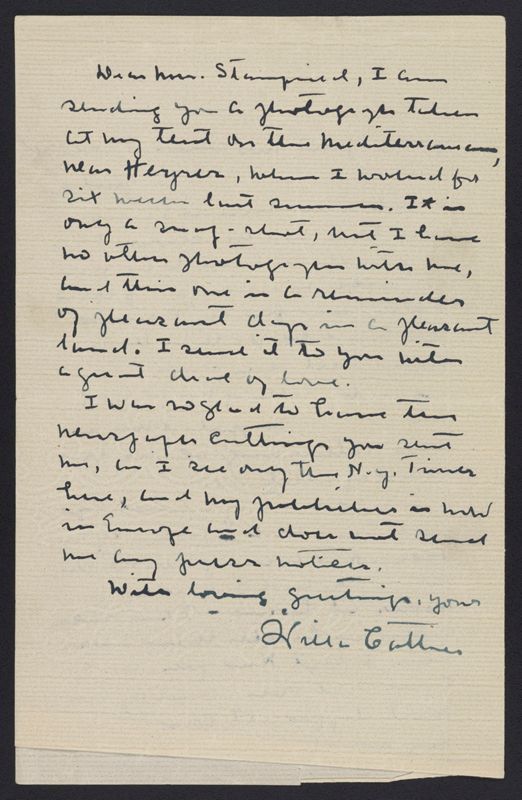 Dear Mrs. Stanfield, I am
sending you a photograph taken
at my tent on the Mediterranean,
near Heyres, where I worked for
six weeks last summer. It is
only a snap-shot, but I have
no other photographs with me,
and this one is a reminder
of pleasant days in a pleasant
land. I send it to you with
a great deal of love.
I was so glad to have the
newspaper cuttings you sent
me, as I see only the N.Y. Times
here, and my publisher is now
in Europe and does not send
me any press notices.
With loving greetings, yours
Willa Cather